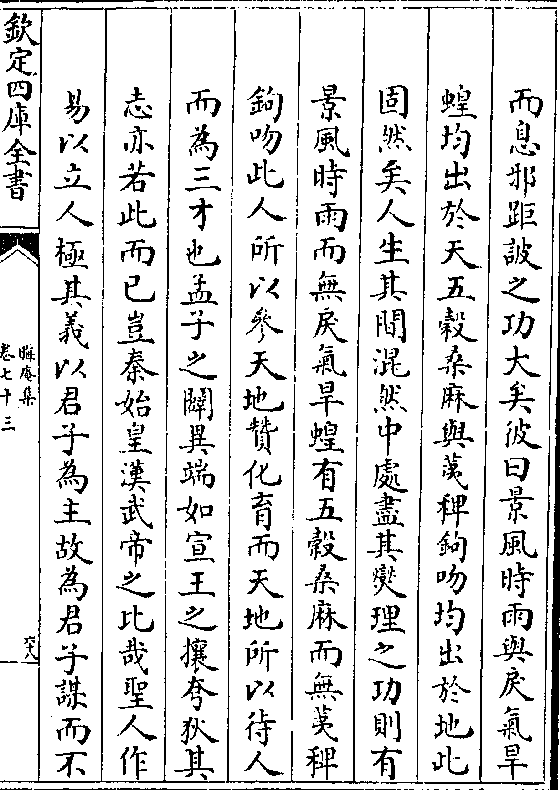 而息邪距詖之功大矣彼曰景風時雨與戾氣旱
蝗均出於天五穀桑麻與荑稗鉤吻均出於地此
固然矣人生其間混然中處盡其爕理之功則有
景風時雨而無戾氣旱蝗有五穀桑麻而無荑稗
鉤吻此人所以參天地贊化育而天地所以待人
而為三才也孟子之闢異端如宣王之攘夸狄其
志亦若此而已豈秦始皇漢武帝之比哉聖人作
易以立人極其義以君子為主故為君子謀而不
欽定四庫全書
晦庵集
卷七十三
六八